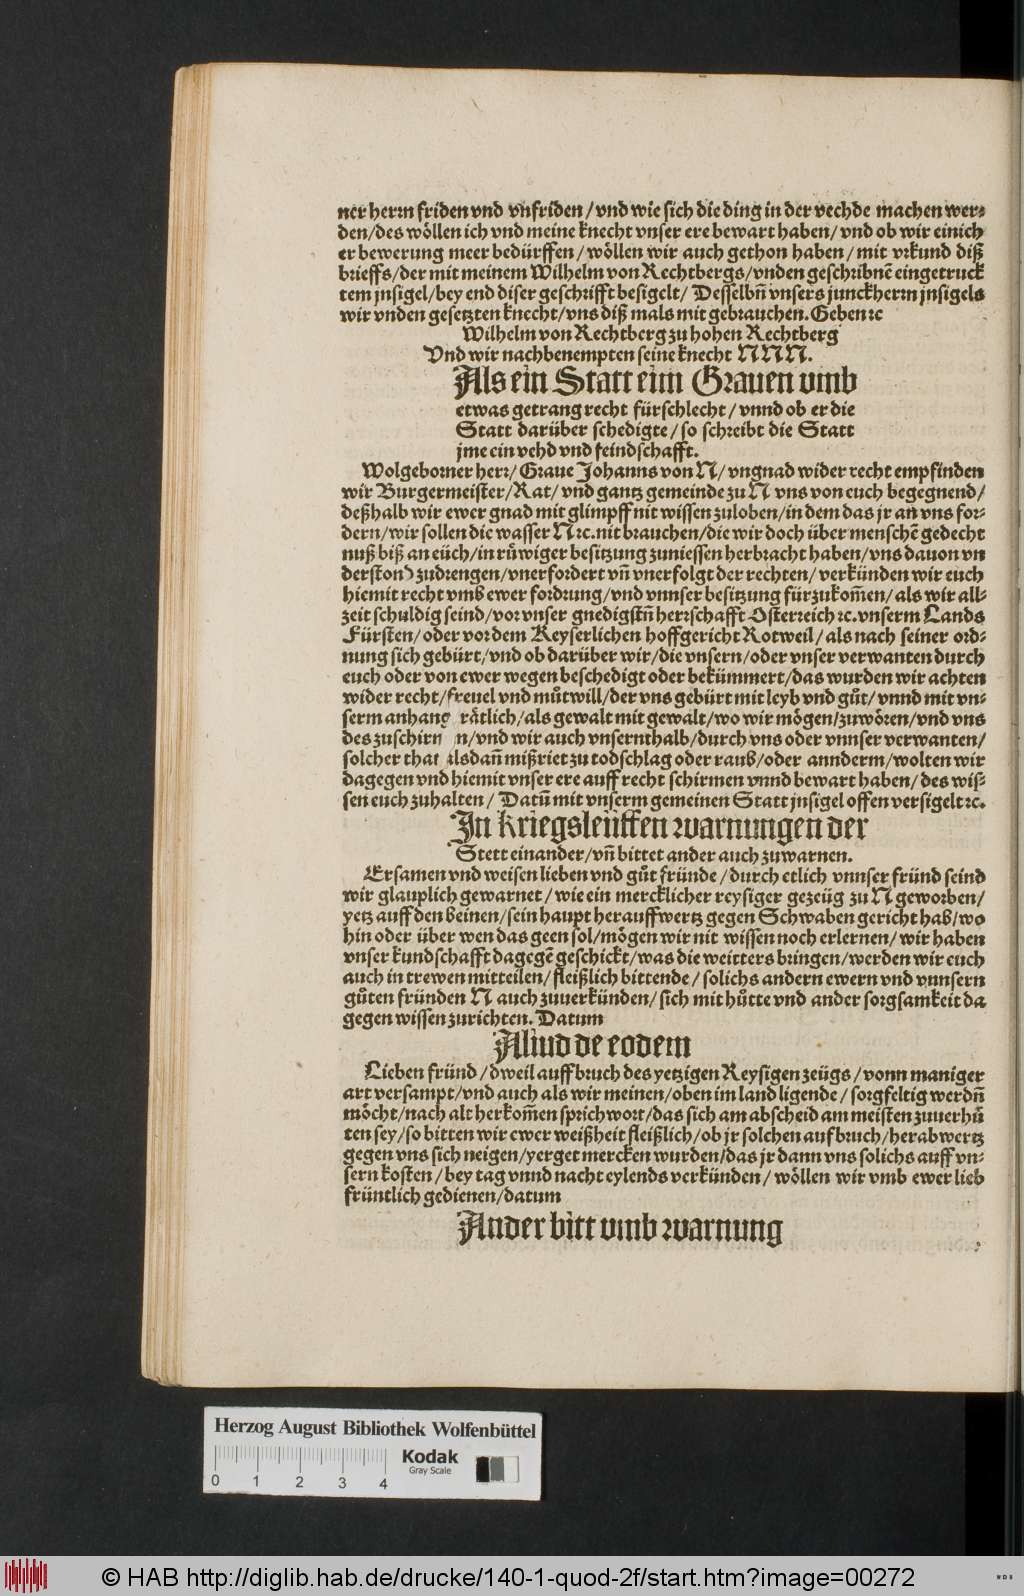 ner herrn friden vnd vnfriden / vnd wie sich die ding in der vechde machen wer⸗
den/des wöllen ich vnd meine knecht vnser ere bewart haben/ vnd ob wir einich
er bewerung meer bedürffen / wöllen wir auch gethon haben / mit vrkund diß
brieffs/der mit meinem Wilhelm von Rechtbergs/vnden geschribnē eingetruck
tem jnsigel/bey end diser geschrifft besigelt/ Desselbn̄ vnsers junckherrn jnsigels
wir vnden gesetzten knecht/vns diß mals mit gebrauchen. Geben ꝛc
Wilhelm von Rechtberg zu hohen Rechtberg
Vnd wir nachbenempten seine knecht N N N.
Als ein Statt eim Grauen vmb
etwas getrang recht fürschlecht / vnnd ob er die
Statt darüber schedigte / so schreibt die Statt
jme ein vehd vnd feindschafft.
Wolgeborner herr/ Graue Johanns von N/ vngnad wider recht empfinden
wir Burgermeister/Rat/ vnd gantz gemeinde zu N vns von euch begegnend/
deßhalb wir ewer gnad mit glimpff nit wissen zuloben/in dem das jr an vns for⸗
dern/wir sollen die wasser N ꝛc. nit brauchen/die wir doch über menschē gedecht
nuß biß an eüch/in rüwiger besitzung zuniessen herbracht haben/vns dauon vn
derston) zudrengen/vnerfordert vn̄ vnerfolgt der rechten/ verkünden wir euch
hiemit recht vmb ewer fordrung/vnd vnnser besitzung fürzukom̄en/ als wir all⸗
zeit schuldig seind/vor vnser gnedigstn̄ herrschafft Osterreich ꝛc. vnserm Lands
Fürsten/ oder vor dem Keyserlichen hoffgericht Rotweil/ als nach seiner ord⸗
nung sich gebürt/vnd ob darüber wir/die vnsern/oder vnser verwanten durch
euch oder von ewer wegen beschedigt oder bekümmert/das wurden wir achten
wider recht/freuel vnd můtwill/der vns gebürt mit leyb vnd gůt/ vnnd mit vn⸗
serm anhang rätlich/als gewalt mit gewalt/wo wir mögen/zuwören/vnd vns
des zuschirm n/vnd wir auch vnsernthalb/durch vns oder vnnser verwanten/
solcher that alsdan̄ mißriet zu todschlag oder raub/oder annderm/wolten wir
dagegen vnd hiemit vnser ere auff recht schirmen vnnd bewart haben/ des wis⸗
sen euch zuhalten / Datū mit vnserm gemeinen Statt jnsigel offen versigelt ꝛc.
In kriegsleüffen warnungen der
Stett einander/vn̄ bittet ander auch zuwarnen.
Ersamen vnd weisen lieben vnd gůt fründe / durch etlich vnnser fründ seind
wir glauplich gewarnet / wie ein mercklicher reysiger gezeüg zu N geworben/
yetz auff den beinen/sein haupt herauffwertz gegen Schwaben gericht hab/wo
hin oder über wen das geen sol/mögen wir nit wissen noch erlernen/ wir haben
vnser kundschafft dagegē geschickt/was die weitters bringen/werden wir euch
auch in trewen mitteilen/ fleißlich bittende / solichs andern ewern vnd vnnsern
gůten fründen N auch zuuerkünden/ sich mit hůtte vnd ander sorgsamkeit da
gegen wissen zurichten. Datum
Aliud de eodem
Lieben fründ / dweil auffbruch des yetzigen Reysigen zeügs / vonn maniger
art versampt/vnd auch als wir meinen/oben im land ligende / sorgfeltig werdn̄
möcht/nach alt herkom̄en sprichwort/das sich am abscheid am meisten zuuerhů
ten sey/so bitten wir ewer weißheit fleißlich/ob jr solchen aufbruch/herabwertz
gegen vns sich neigen/yerget mercken wurden/das jr dann vns solichs auff vn⸗
sern kosten / bey tag vnnd nacht eylends verkünden / wöllen wir vmb ewer lieb
früntlich gedienen/datum
Ander bitt vmb warnung
Herzog August Bibliothek Wolfenbüttel
Kodak
Gray Scale
0 1 2 3 4
© HAB http://diglib.hab.de/drucke/140-1-quod-2f/start.htm?image=00272